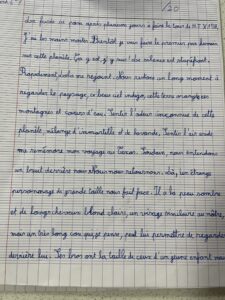 /20
des fusées et pars après plusieurs jours à faire le tour de
J'ai les mains moites. Bientôt je vais faire le premier pas
sur cette planète. Ça y est, j'y suis ! Le silence est stupéfiant.
Rapidement me rejoint. Nous restons un long moment à
regarder le paysage, ce beau ciel indigo, cette terre orangée, ses
montagnes et cours d'eau. Sentir l'odeur inconnue de cette
planète, mélange d'immortelle et de lavande. Sentir l'air
me remémore mon voyage au . Soudain, nous entendons
un bruit derrière nous. Nous nous retournons. Là, un étrange
personnage de grande taille nous fait face. Il a la peau sombre
et de longs cheveux blond clairs, un visage similaire au nôtre,
mais un très long cou qui, je pense, peut lui permettre de regarder
derrière lui. Ses bras ont la taille de ceux d'un jeune enfant